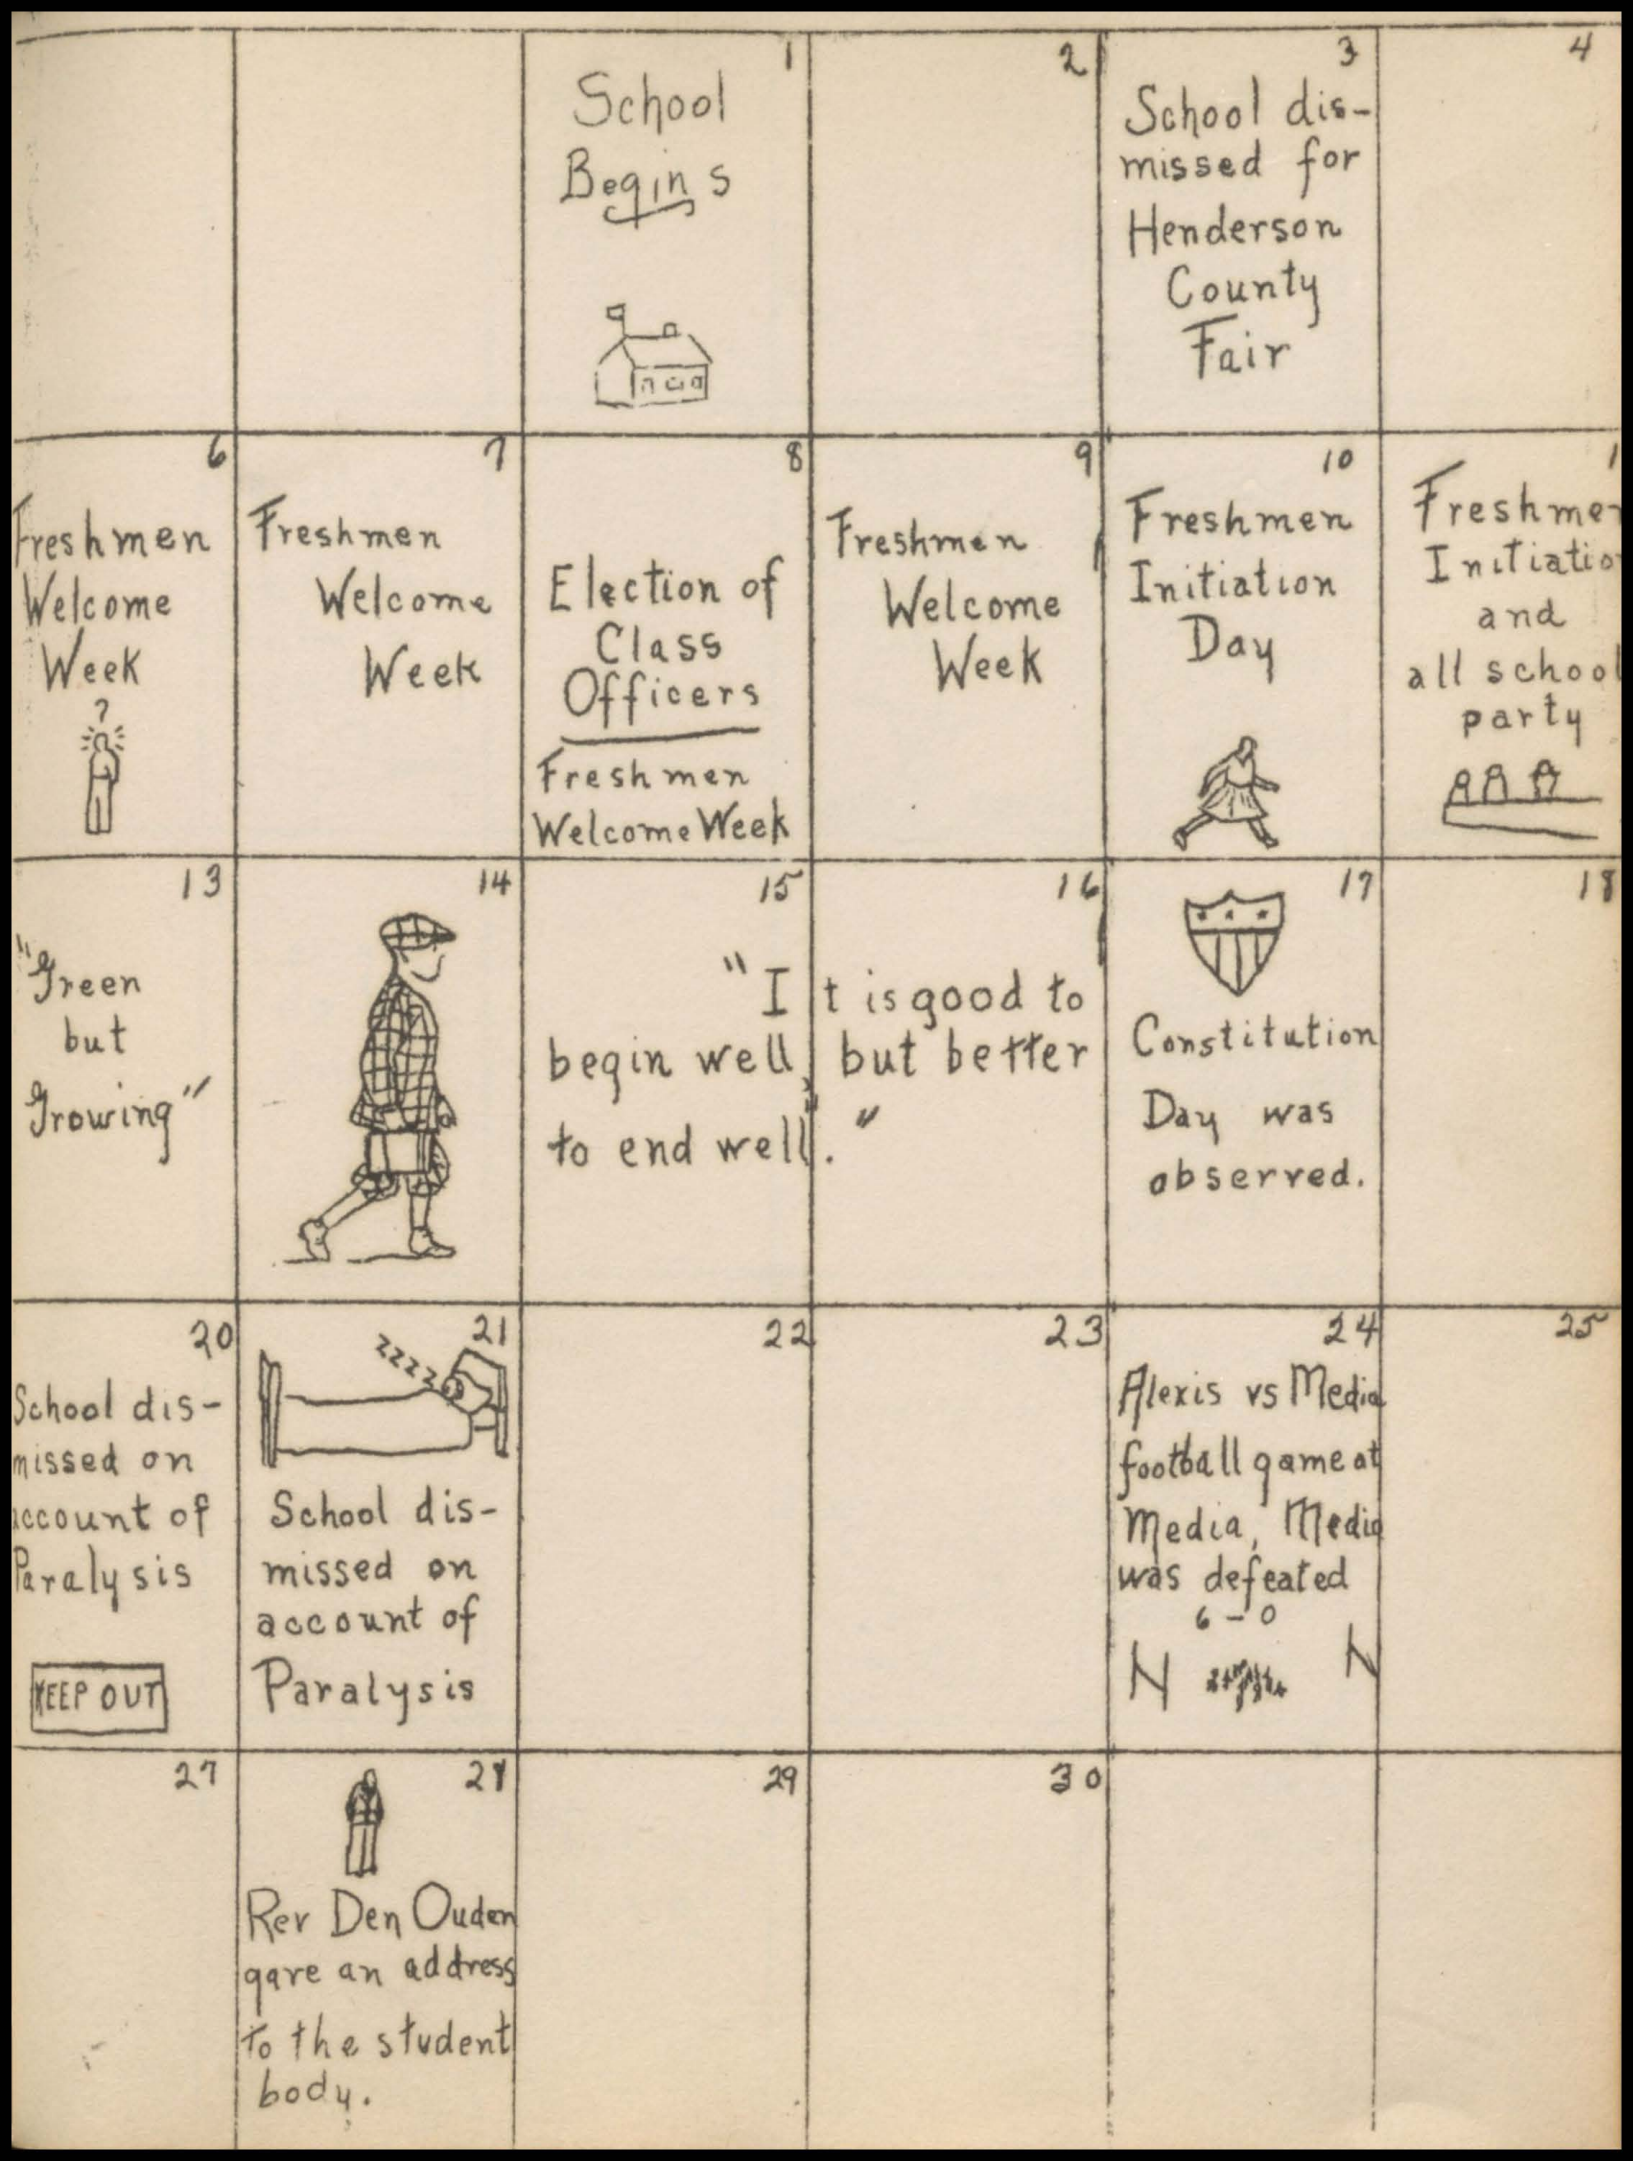 1
School
Begins
2
3
School dis-
missed for
Henderson
County
Fair
4
6
Freshmen
Welcome
Week
?
7
Freshmen
Welcome
Week
8
Election of
Class
Officers
Freshmen
Welcome Week
9
Freshmen
Welcome
Week
10
Freshmen
Initiation
Day
1
Freshmen
Initiatio
and
all school
party
13
"Green
but
Growing"
14
15
16
"It is good to
begin well, but better
to end well."
17
Constitution
Day was
observed.
18
20
School dis-
missed on
account of
Paralysis
KEEP OUT
21
zzzzz
School dis-
missed on
account of
Paralysis
22
23
24
Alexis vs Media
football game at
Media, Media
was defeated
6 - 0
N N
25
27
28
Rev Den Ouden
gave an address
to the student
body.
29
30